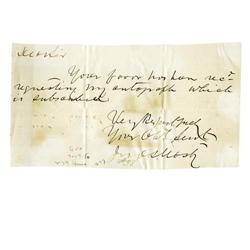 Dear Sir
Your favor has been rec'd
requesting my autograph which
is subscribed
Very Respectfully
Your Obt Servt